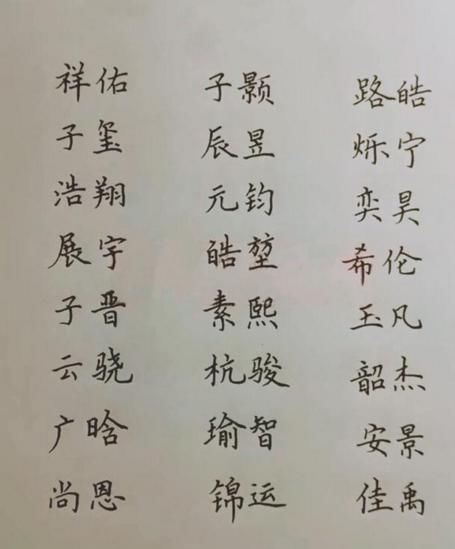 祥佑 子颢 路皓
子玺 辰昱 烁宁
浩翔 元钧 奕昊
展宇 皓堃 希伦
子晋 素熙 玉凡
云骁 杭骏 韶杰
广晗 瑜智 安景
尚恩 锦运 佳禹